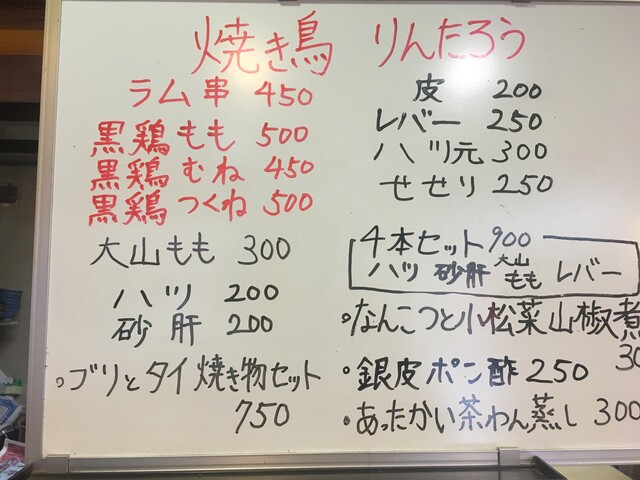 焼き鳥 りんたろう
ラム串 450
黒鶏もも 500
黒鶏むね 450
黒鶏つくね 500
大山もも 300
ハツ 200
砂肝 200
○ブリとタイ焼き物セット
750
皮 200
レバー 250
ハツ元 300
せせり 250
4本セット 900
ハツ 砂肝 大山もも レバー
○なんこつと小松菜山椒煮
30
○銀皮ポン酢 250
○あったかい茶わん蒸し 300